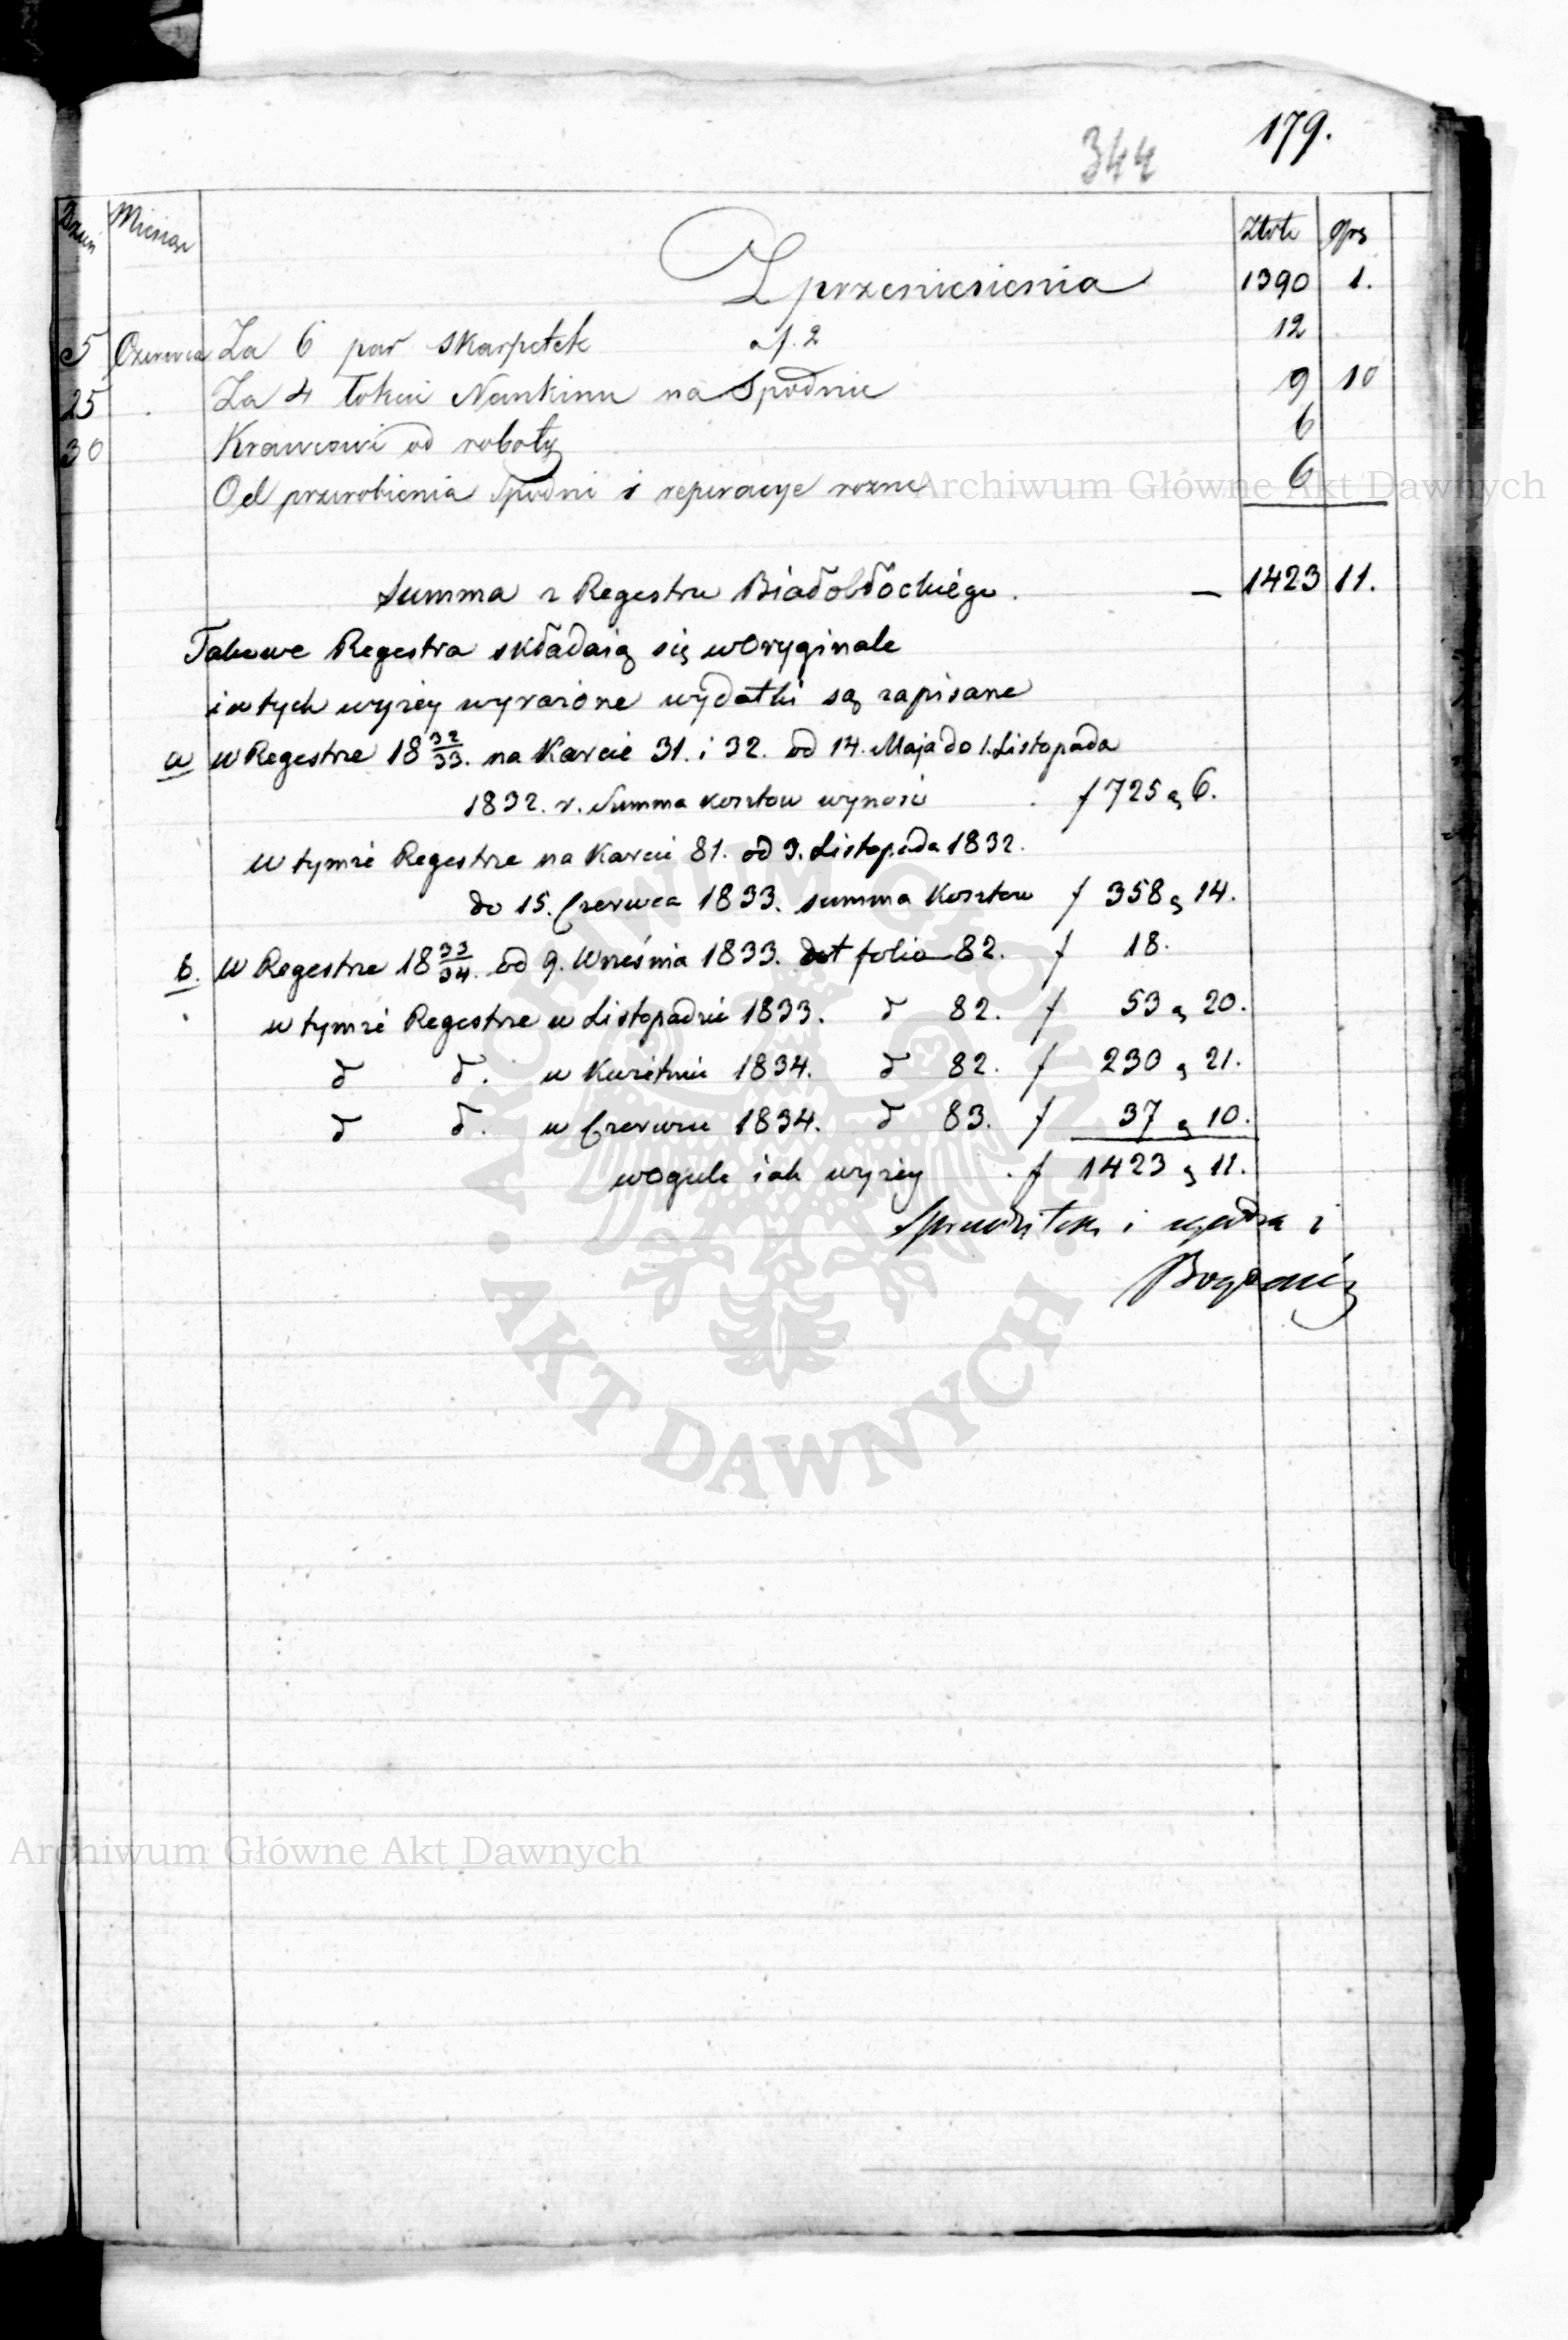 179.
344
Dzień Miesiąc Złote grs
Z przeniesienia 1390 1.
5 Czerwca Za 6 par skarpetek a f. 2 12
25 . Za 4 łokcie Nankinu na Spodnie 9 10
30 Krawcowi od roboty 6
Od przerobienia Spodni i reperacye rozne 6
Summa z Regestru Białobłockiego. — 1423 11.
Takowe Regestra składaią się w Oryginale
i w tych wyżey wyrażone wydatki są zapisane
a w Regestrze 18 32/33. na Karcie 31. i 32. od 14. Maja do 1. Listopada
1832. r. Summa kosztow wynosi . f 725 g 6.
w tymże Regestrze na Karcie 81. od 3. Listopada 1832.
do 15. Czerwca 1833. summa Kosztow f 358 g 14.
b. w Regestrze 18 33/34. od 9. Września 1833. folio 82. f 18.
w tymże Regestrze w Listopadzie 1833. d 82. f 53 g 20.
d d. w Kwietniu 1834. d 82. f 230 g 21.
d d. w Czerwcu 1834. d 83. f 37 g 10.
wogule iak wyżey . f 1423 g 11.
i zgadza
Archiwum Główne Akt Dawnych
ARCHIWUM GŁÓWNE
AKT DAWNYCH
Archiwum Główne Akt Dawnych